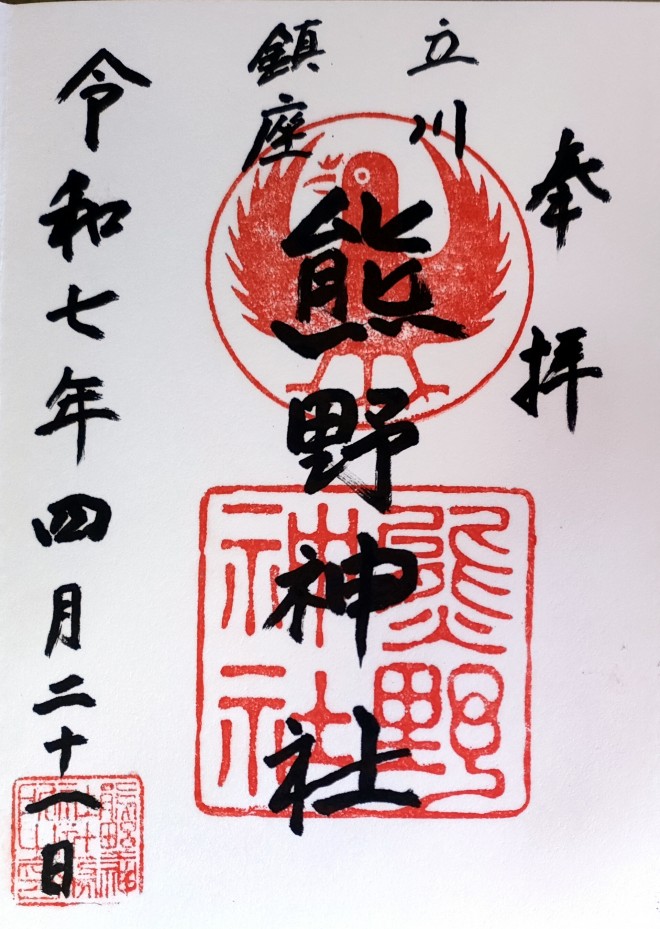 奉拝
立川
鎮座
熊野神社
熊野神社
令和七年四月二十一日